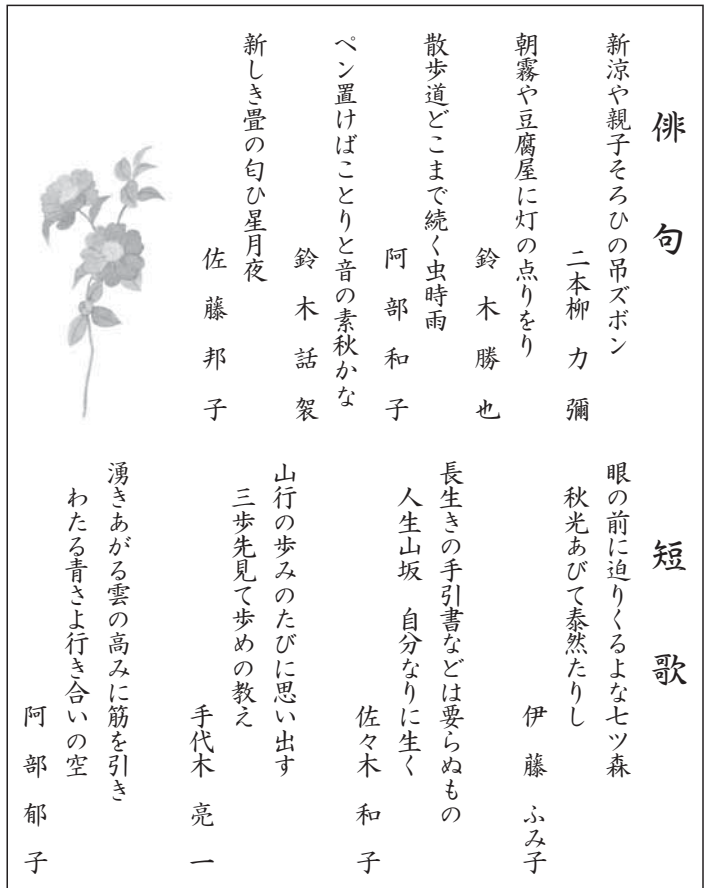 俳句
新涼や親子そろひの吊ズボン
二本柳 力彌
朝霧や豆腐屋に灯の点りをり
鈴木勝也
散歩道どこまで続く虫時雨
阿部和子
ペン置けばことりと音の素秋かな
鈴木話袈
新しき畳の匂ひ星月夜
佐藤邦子
短歌
眼の前に迫りくるよな七ツ森
秋光あびて泰然たりし
伊藤ふみ子
長生きの手引書などは要らぬもの
人生山坂 自分なりに生く
佐々木和子
山行の歩みのたびに思い出す
三歩先見て歩めの教え
手代木亮一
湧きあがる雲の高みに筋を引き
わたる青さよ行き合いの空
阿部郁子